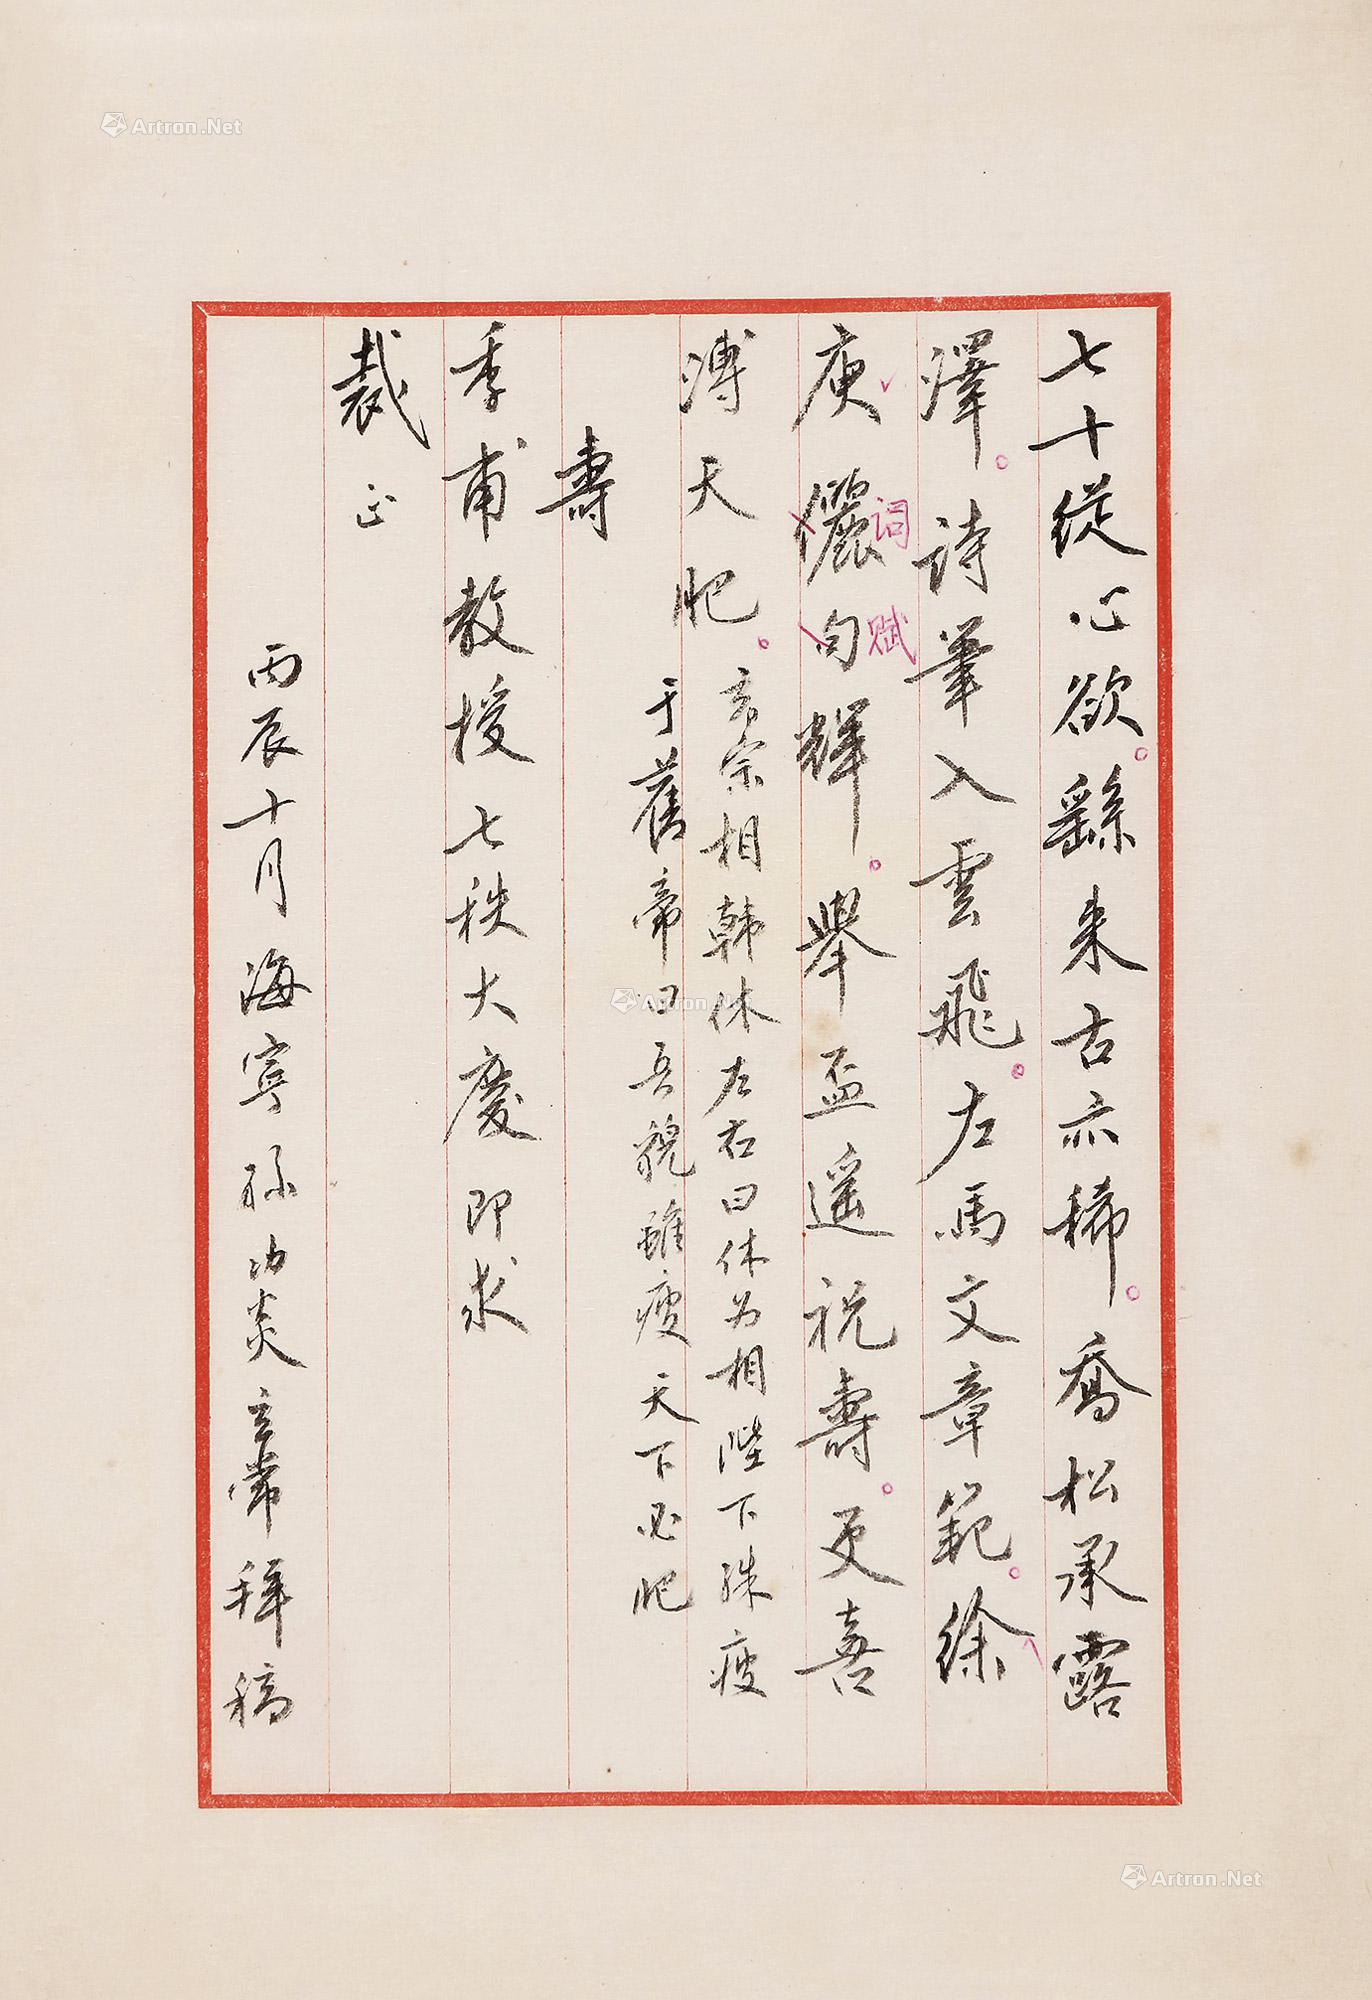 七十從心欲。繇来古亦稀。喬松承露
澤。詩筆入雲飛。左馬文章範。徐
庾儷句輝。舉盃遥祝壽。更喜
詞賦
溥天肥。
玄宗相韩休左右曰休为相陛下殊瘦
于舊帝曰吾貌雖瘦天下必肥
壽
季甫教授七秩大慶即求
裁正
丙辰十月海寧孫功炎玄常拜稿
Artron.Net
Artron.Net
Artron.Net